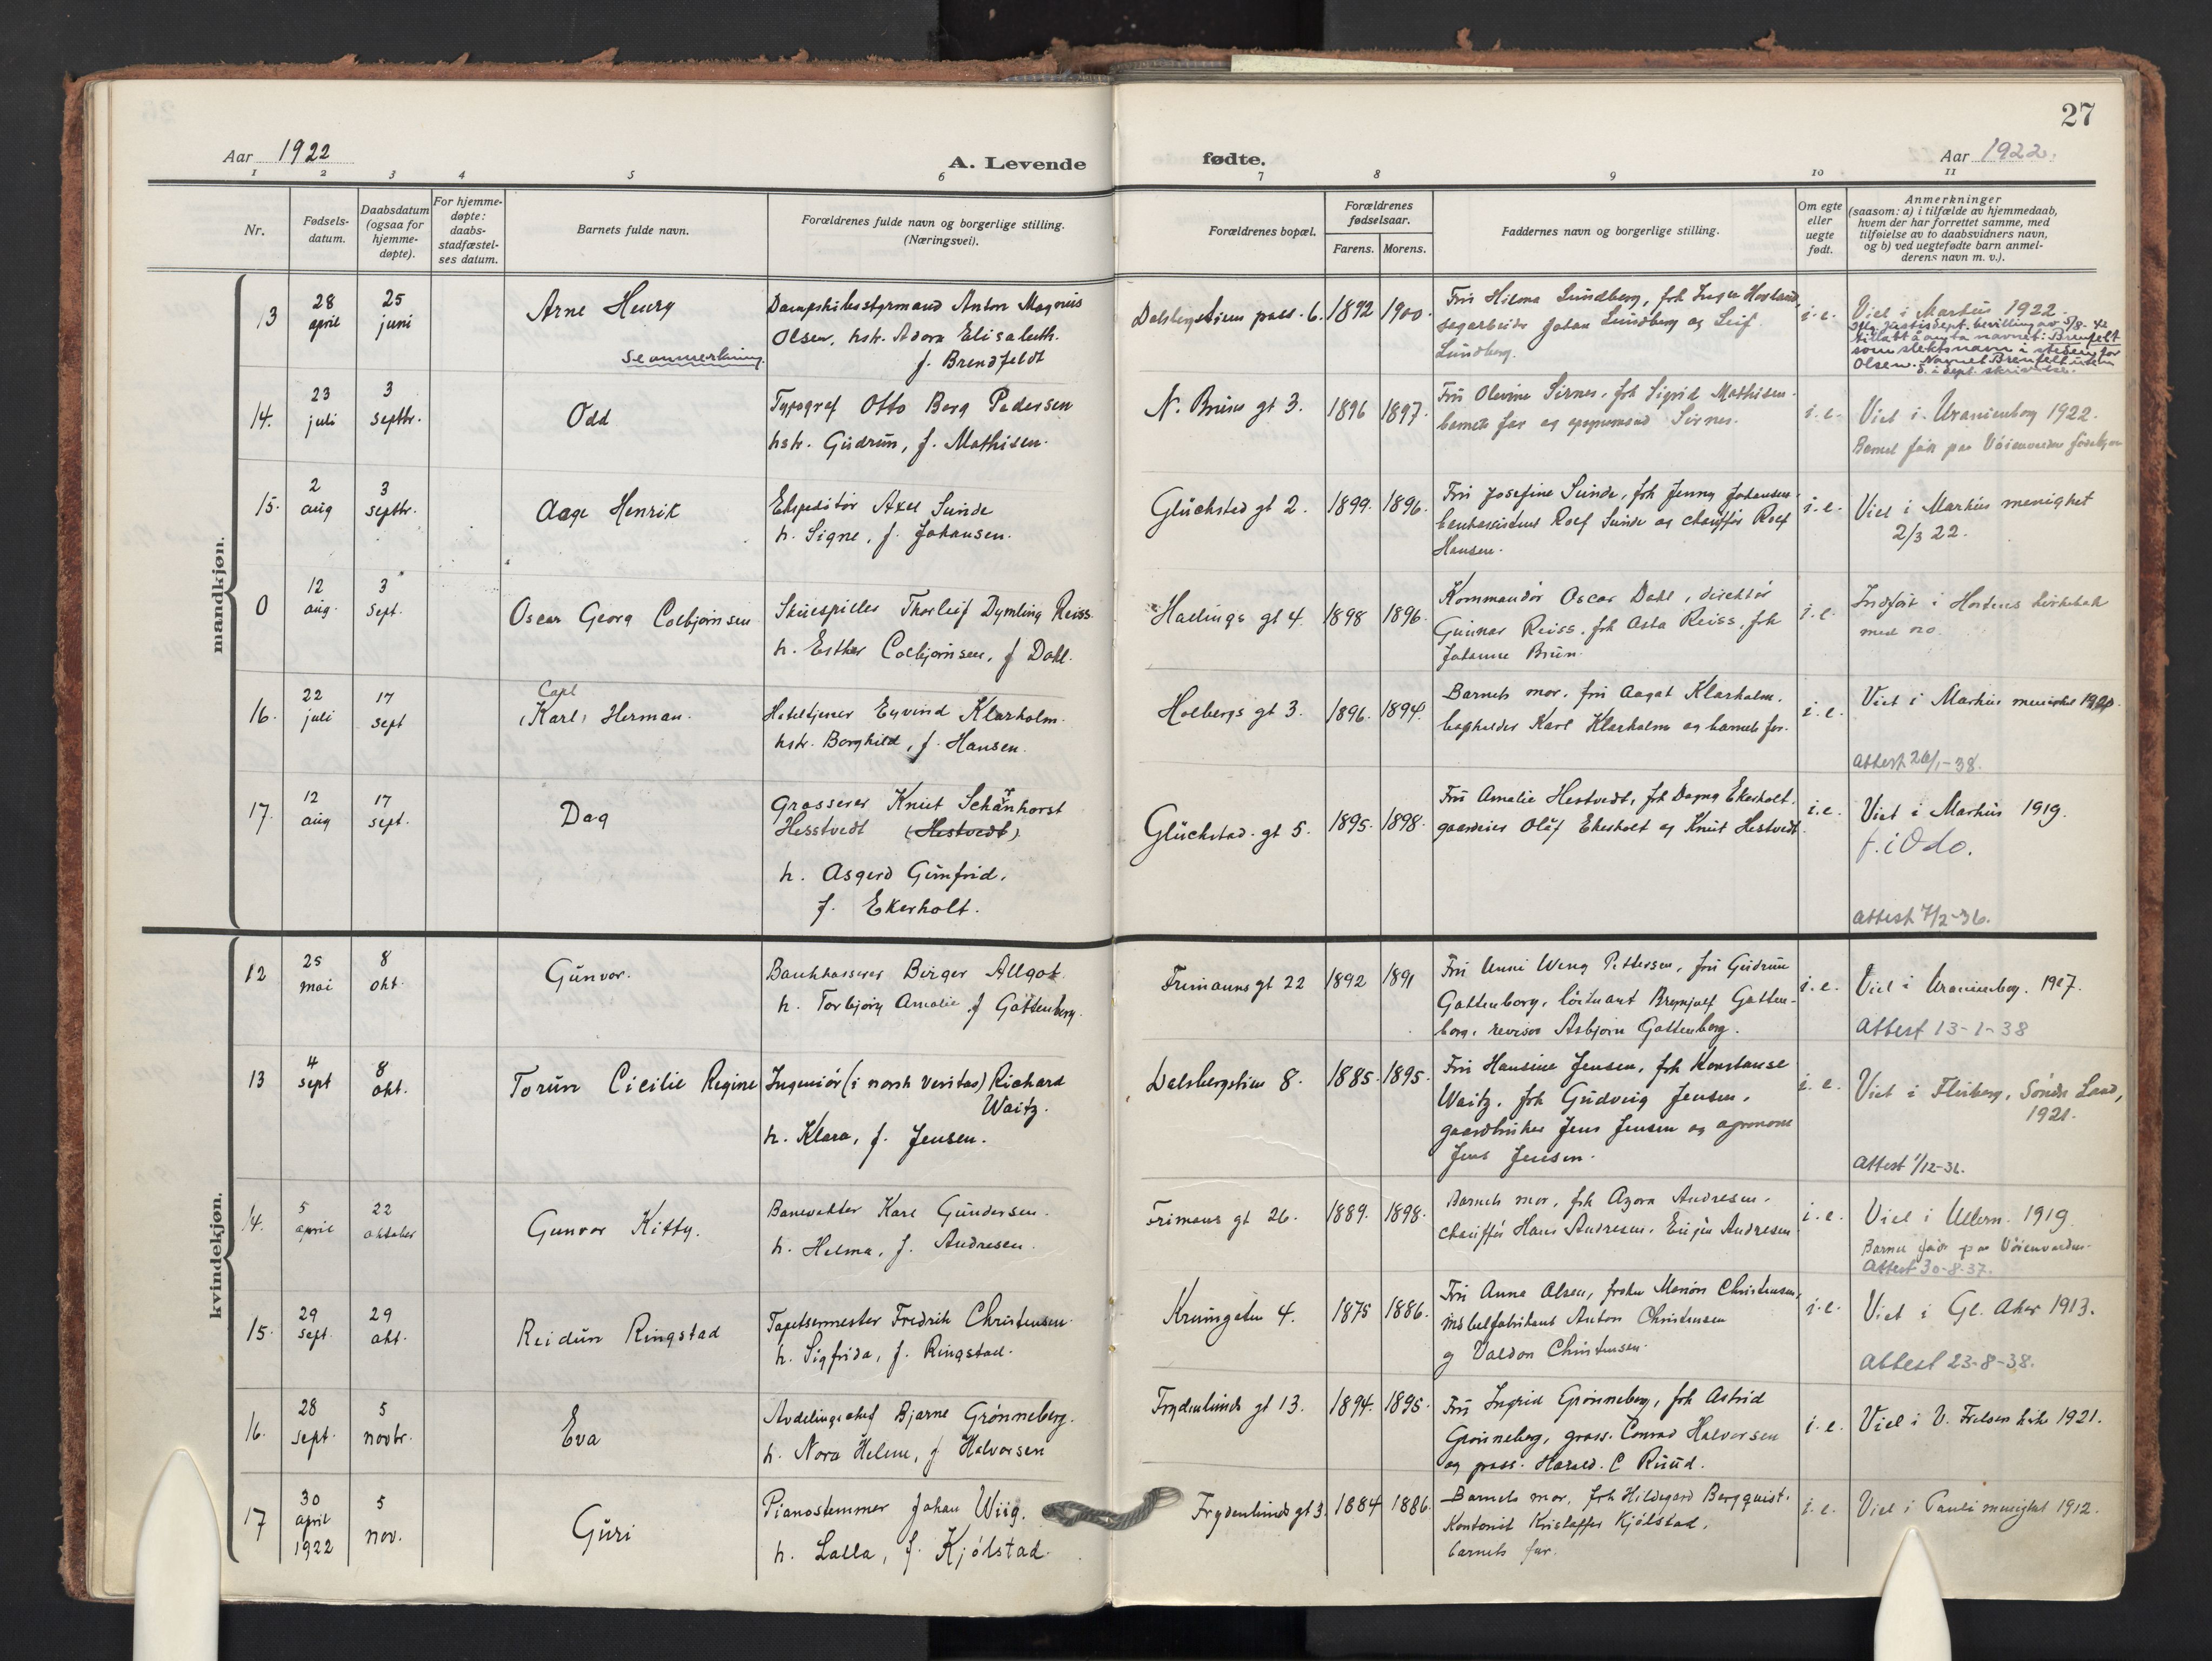 27
Aar 1922
A. Levende
fødte.
Aar 1922.
1 2 3 4 5 6 7 8 9 10 11
Nr.
Fødsels-
datum.
Daabsdatum
(ogsaa for
hjemme-
døpte).
For hjemme-
døpte:
daabs-
stadfæstel-
ses datum.
Barnets fulde navn.
Forældrenes fulde navn og borgerlige stilling.
(Næringsvei).
Forældrenes bopæl.
Forældrenes
fødselsaar.
Farens. Morens.
Faddernes navn og borgerlige stilling.
Om egte
eller
uegte
født.
Anmerkninger
(saasom: a) i tilfælde av hjemmedaab,
hvem der har forrettet samme, med
tilføielse av to daabsvidners navn,
og b) ved uegtefødte barn anmel-
derens navn m. v.).
mandkjøn.
13
28
april
25
juni
Arne Henry
Se anmerkning.
Dampskibsstyrmand Anton Magnus
Olsen, hstr. Adora Elisabeth.
f. Brendfeldt
Dalsbergstiens pass. 6.
1892
1900.
Fru Hilma Lundberg, frk Inger Hovland,
sagarbeider Johan Lundberg og Leif
Lundberg.
i. e.
Viet i Markus 1922.
Iflg. Justisdept. bevilling av 5/8-42
tillatt å anta navnet: Brenfelt
som slektsnavn i steden for
Olsen. Navnet Brenfelt uten
d. i dept. skrivelse.
14.
23
juli
3
septbr.
Odd
Typograf Otto Berg Pedersen
hstr. Gudrun, f. Mathisen.
N. Bruns gt 3.
1896
1897.
Fru Olevine Sirnes, frk Sigrid Mathisen.
barnets far og Sirnes.
i. e.
Viet i Uranienborg 1922.
Barnet født paa Vöienvolden
15.
2
aug
3
septbr.
Aage Henrik
Ekspeditör Axel Sunde
h. Signe, f. Johansen.
Glückstad gt 2.
1899.
1896.
Fru Josefine Sunde, frk Jenny Johansen.
bankassistent Rolf Sunde og chauffør Rolf
Hansen.
i. e.
Viet i Markus menighet
2/3 22.
0
12
aug.
3
Sept.
Oscar Georg Colbjørnsen
Skuespiller Thorleif Dymling Reiss.
h. Esther Colbjørnsen, f Dahl.
Hallings gt 4.
1898
1896.
Kommandør Oscar Dahl, direktør
Gunnar Reiss, frk Asta Reiss, frk
Johanne Brun.
i. e.
Indført i Hortens kirkebok
med no.
16.
22
juli
17
sept
Carl
(Karl) Herman.
Hoteltjener Eyvind Klarholm.
hstr. Borghild, f. Hansen.
Holbergs gt 3.
1896.
1894.
Barnets mor, fru Aagat Klarholm.
bogholder Karl Klarholm og barnets far.
i. e.
Viet i Markus menighet 1920.
Attest 26/1-38.
17.
12
aug
17
sept.
Dag
Grosserer Knut Schønhorst
Hesstvedt (Hestvedt)
h. Asgerd Gunfrid.
f. Ekerholt.
Glückstad. gt 5.
1895.
1898.
Fru Amalie Hestvedt, frk Dagny Ekerholt.
gaardeier Oluf Ekerholt og Knut Hestvedt.
i. e.
Viet i Markus 1919.
f. i Oslo.
Attest 7/2-36.
kvindekjøn.
12
25
mai
8
okt.
Gunvor.
Bankkasserer Birger Allgot
h. Torbjørg Amalie, f Gattenborg.
Frimanns gt 22
1892
1891
Fru Unni Weng Pettersen, fru Gudrun
Gattenborg, löitnant Brynjulf Gatten-
borg, revisor Asbjørn Gattenborg.
i. e.
Viet i Uranienborg. 1917.
Attest 13-1-38
13
4
sept
8
okt.
Torun Cicilie Regine
Ingeniör (i norsk Veritas) Richard
Waitz.
h. Klara, f. Jensen.
Dalsbergstien 8.
1885.
1895.
Fru Hansine Jensen, frk Konstanse
Waitz, frk Gudveig Jensen,
gaardbruker Jens Jensen og agronom
Jens Jensen.
i. e.
Viet i Fluberg, Söndre Land,
1921.
Attest 1/12-36.
14.
5
april
22
oktober
Gunvor Kitty.
Banevokter Karl Gundersen.
h. Helma, f. Andresen.
Frimans gt 26.
1889.
1898.
Barnets mor, frk Agora Andresen.
chauffør Hans Andresen. Eugen Andresen
i. e.
Viet i Ullern. 1919.
Barnet født paa Vöienvolden.
Attest 30-8-37.
15.
29
sept.
29
okt.
Reidun Ringstad
Tapetsermester Fredrik Christensen.
h. Sigfrida, f. Ringstad.
Krumgaten 4.
1875
1886.
Fru Anna Olsen, frøken Marion Christensen,
møbelfabrikant Anton Christensen
og Valdon Christensen.
i. e.
Viet i Gl. Aker 1913.
Attest 23-8-38.
16.
28
sept.
5
novbr.
Eva
Avdelingschef Bjarne Grønneberg.
h. Nora Helene, f Halvorsen
Frydenlunds gt 13.
1894.
1895.
Fru Ingrid Grønneberg, frk Astrid
Grønneberg, gross. Conrad Halvorsen
og gross. Harald. C Ruud.
i. e.
Viet i V. Frelsers kirke 1921.
17
30
april
1922
5
nov.
Guri
Pianostemmer Johan Wiig.
h. Lalla, f. Kjølstad.
Frydenlunds gt 3.
1884
1886.
Barnets mor, frk Hildegard Bergquist.
Kontorist Kristoffer Kjølstad,
barnets far.
i. e.
Viet i Pauli menighet 1912.